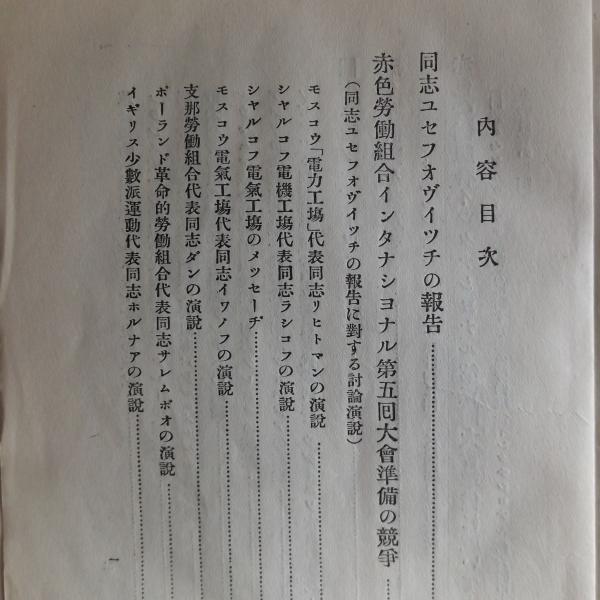 內容目次
同志ユセフオヴイツチの報告
赤色勞働組合インタナシヨナル第五回大會準備の競爭
(同志ユセフオヴイツチの報告に對する討論演說)
モスコウ「電力工場」代表同志リヒトマンの演說
シヤルコフ電機工場代表同志ラシコフの演說
シヤルコフ電氣工場のメツセーヂ
モスコウ電氣工場代表同志イワノフの演說
支那勞働組合代表同志ダンの演說
ポーランド革命的勞働組合代表同志サレムボオの演說
イギリス少數派運動代表同志ホルナアの演說
一